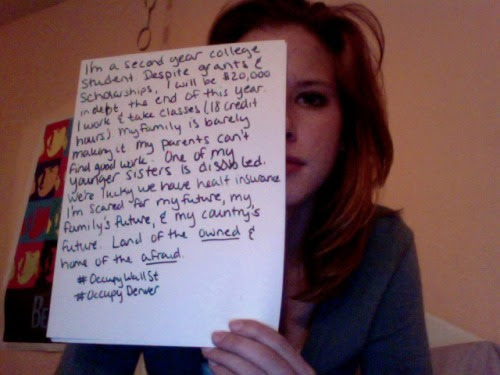 I'm a second year college
student. Despite grants &
scholarships, I will be $20,000
in debt the end of this year.
I work & take classes (18 credit
hours) my family is barely
making it. My parents can't
find good work. One of my
younger sisters is disabled.
We're lucky we have healt insurance
I'm scared for my future, my
family's future, & my country's
future. Land of the owned &
home of the afraid.
#OccupyWallSt
#OccupyDenver
Be